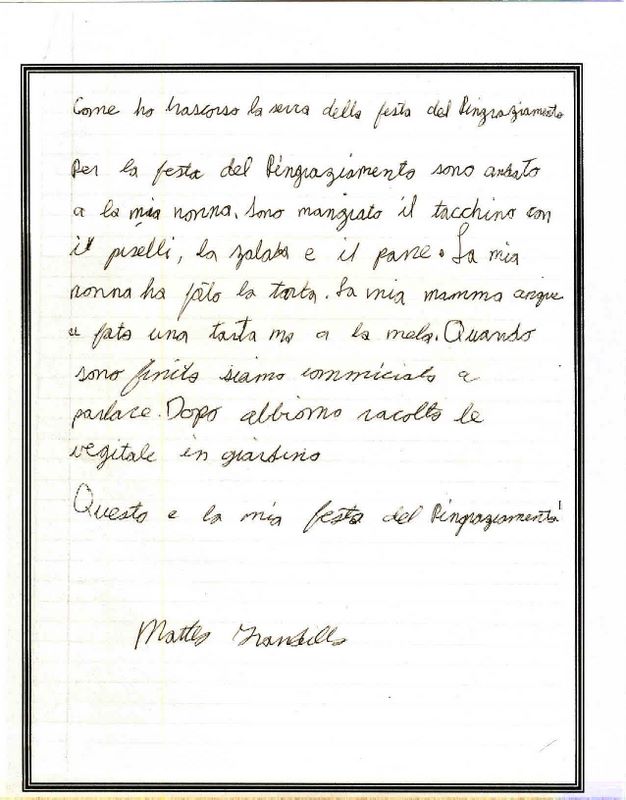 Come ho trascorso la serra della festa del Ringraziamento
Per la festa del Ringraziamento sono andato
a la mia nonna. Sono mangiato il tacchino con
il piselli, la zalata e il pane. La mia
nonna ha fato la torta. La mia mamma anque
a fato una tarta ma a la mela. Quando
sono finito siamo commiciato a
parlare. Dopo abbiamo racolto le
vegitale in giardino
Questo e la mia festa del Ringraziamento!
Matteo